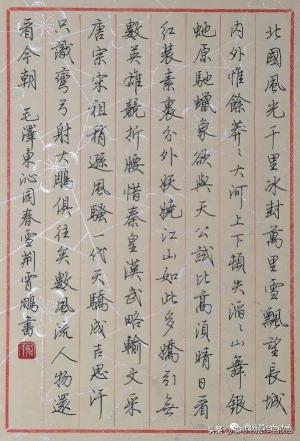 北國風光千里冰封萬里雪飄望長城
内外惟餘莽々大河上下頓失滔々山舞銀
蛇原馳蠟象欲與天公試比高須晴日看
红装素裹分外妖嬈江山如此多嬌引無
數英雄競折腰惜秦皇漢武略輸文采
唐宗宋祖稍遜風騷一代天驕成吉思汗
只識彎弓射大鵬俱往矣數風流人物還
看今朝 毛澤東沁园春雪荆霄鵬書